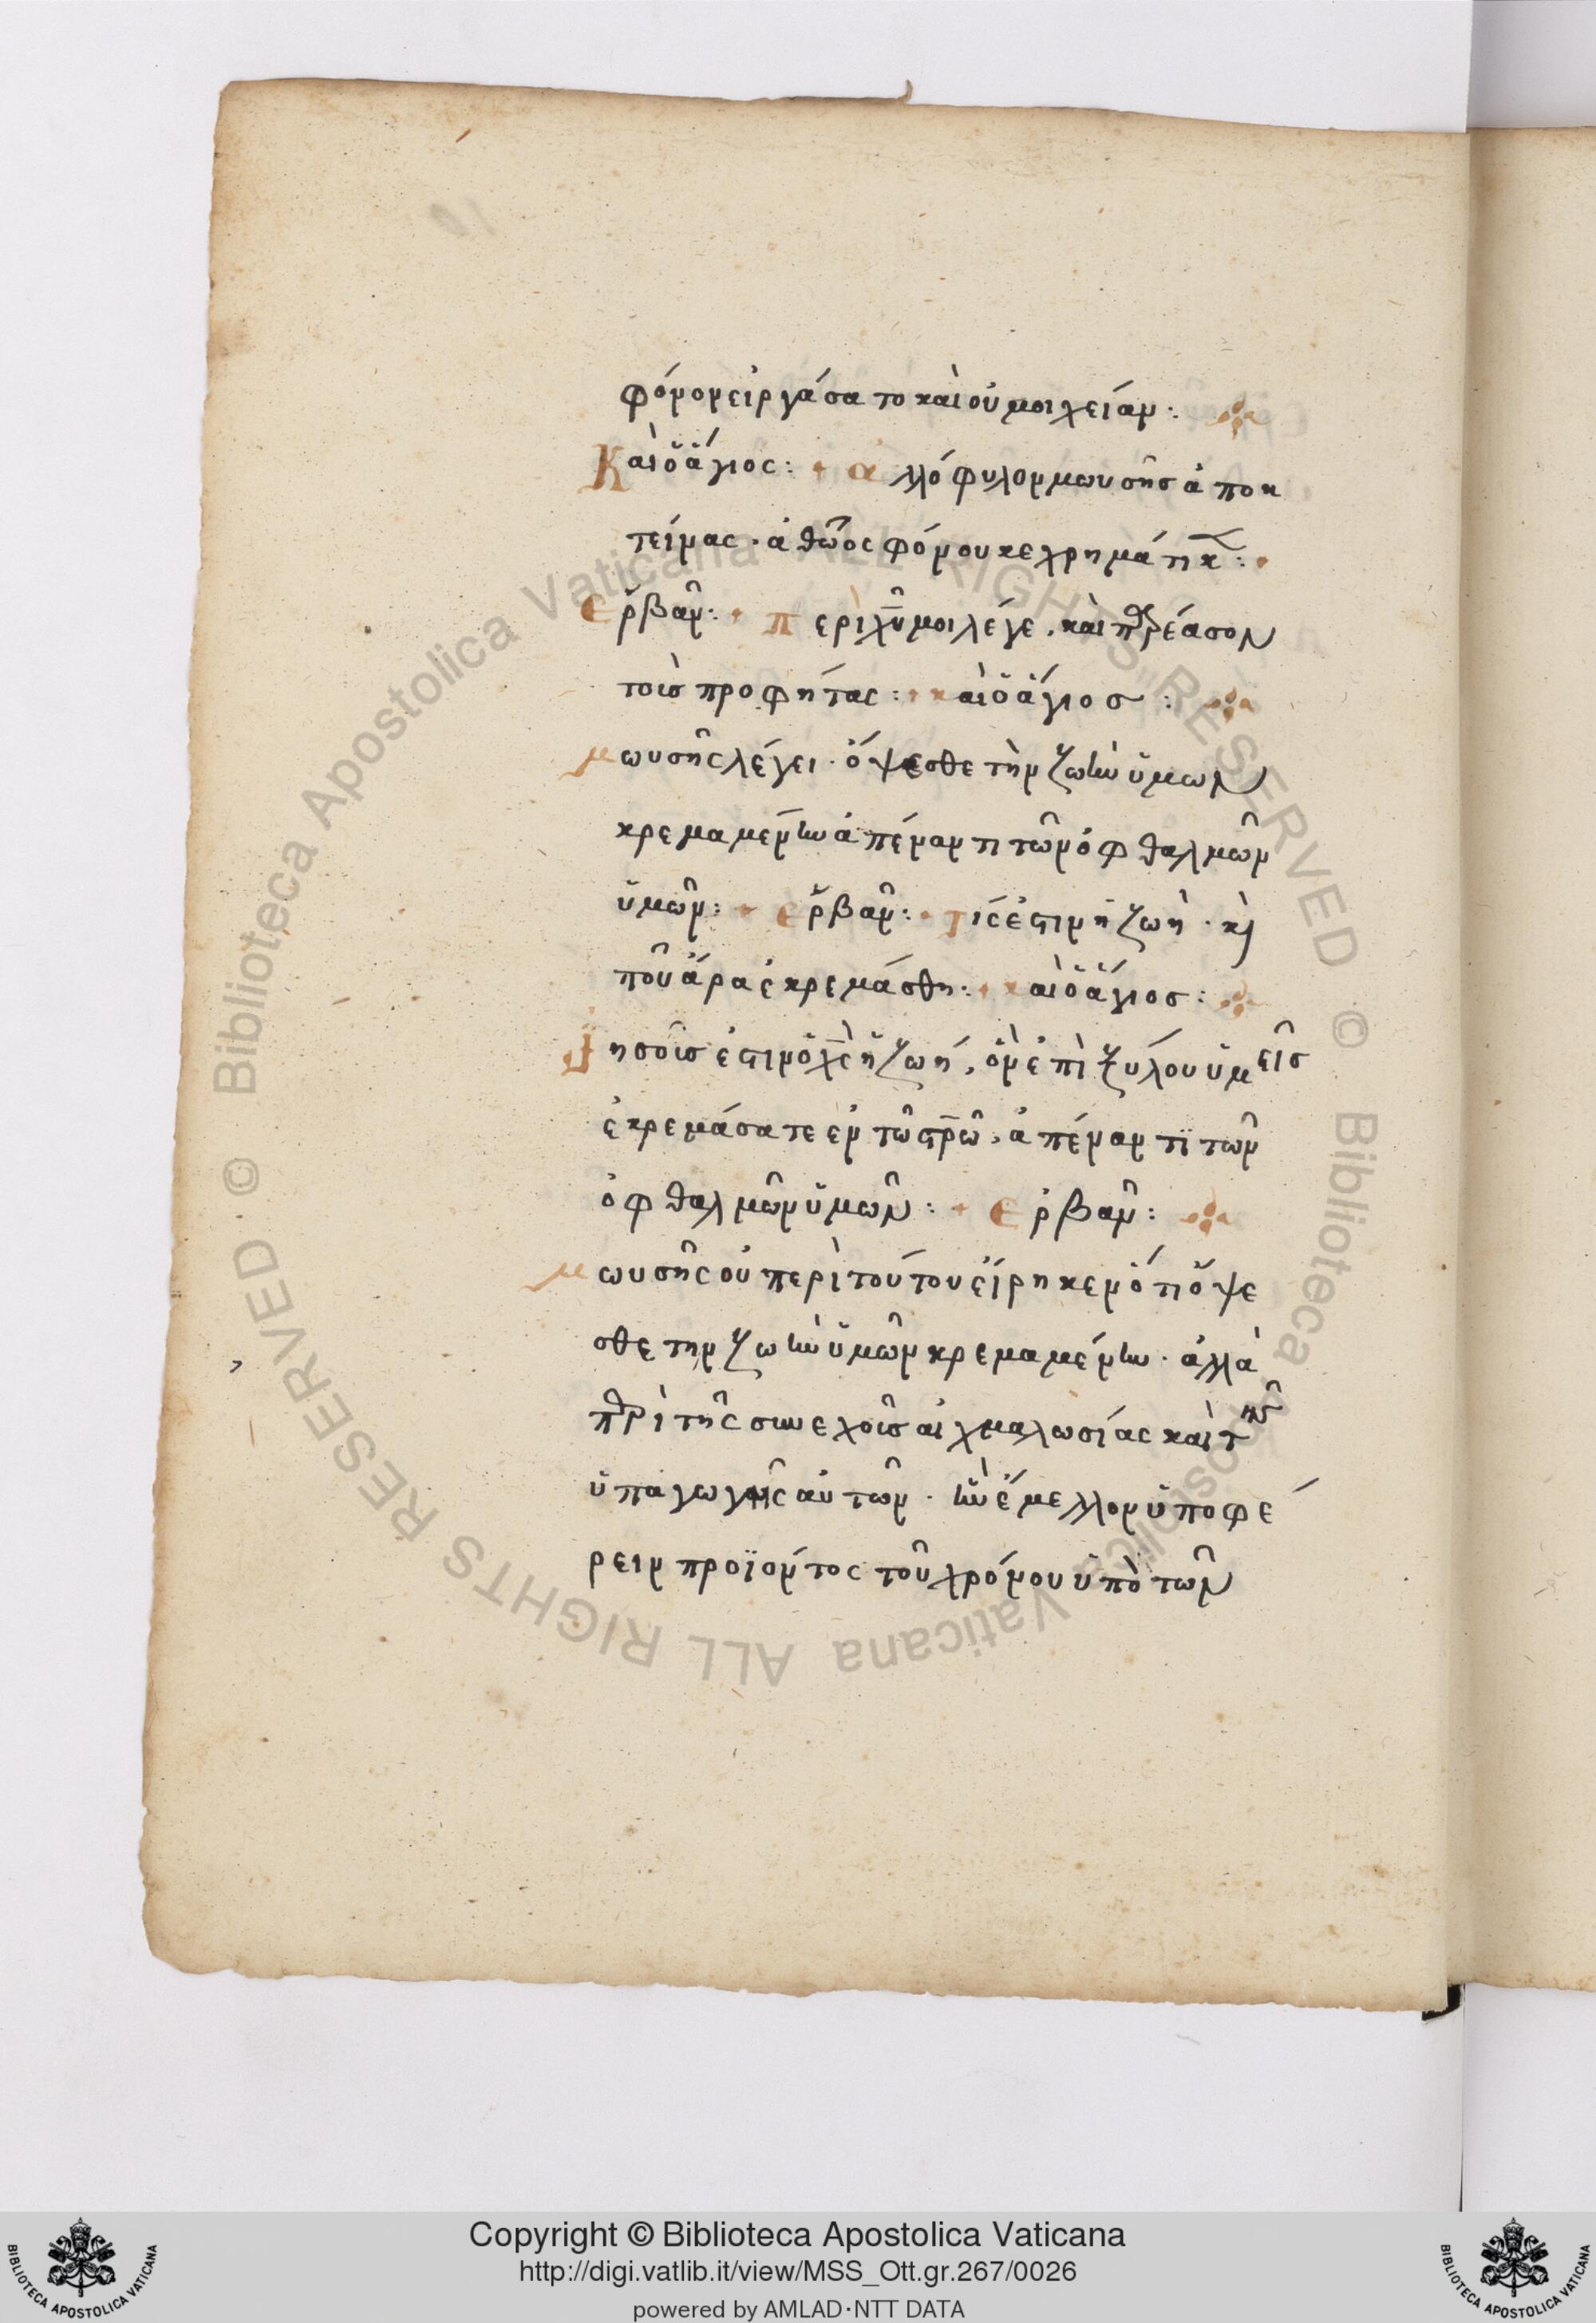 φόνον εἰργάσατο καὶ οὐ μοιχείαν :
Καὶ ὁ ἅγιος : ἀλλόφυλον μωυσῆς ἀποκ
τείνας · ἀθῶος φόνου κεχρημάτικ :
Ερβαν : Περὶ χυ μοι λέγε, καὶ παρέασον
τοὺς προφήτας : καὶ ὁ ἅγιος :
μωυσῆς λέγει · ὄψεσθε τὴν ζωὴν ὑμων
κρεμαμένην ἀπέναντι τῶν ὀφθαλμῶν
ὑμῶν : ερβαν : Τίς ἐστιν ἡ ζωὴ · κὶ
ποῦ ἄρα ἐκρεμάσθη : καὶ ὁ ἅγιος :
Ἰησοῦς ἐστιν ὁ χς ἡ ζωή, ὃν ἐπὶ ξύλου ὑμεῖς
ἐκρεμάσατε εν τῶ στρῶ, ἀπέναντϊ τῶν
ὀφθαλμῶν ὑμῶν : Ερβαν :
μωυσῆς οὐ περὶ τούτου εἴρηκεν ὅτι ὄψε
σθε την ζωὴν ὑμῶν κρεμαμένην · ἀλλὰ
περὶ τῆς συνεχοῦς αἰχμαλωσίας καὶ τῆς
ὑπαγωγῆς αὐτῶν · ἣν ἔμελλον ὑποφέ
ρειν προϊόντος τοῦ χρόνου ὑπὸ τῶν
Copyright © Biblioteca Apostolica Vaticana
http://digi.vatlib.it/view/MSS_Ott.gr.267/0026
powered by AMLAD·NTT DATA
BIBLIOTECA APOSTOLICA VATICANA
BIBLIOTECA APOSTOLICA VATICANA
© Biblioteca Apostolica Vaticana ALL RIGHTS RESERVED · © Biblioteca Apostolica Vaticana ALL RIGHTS RESERVED ·